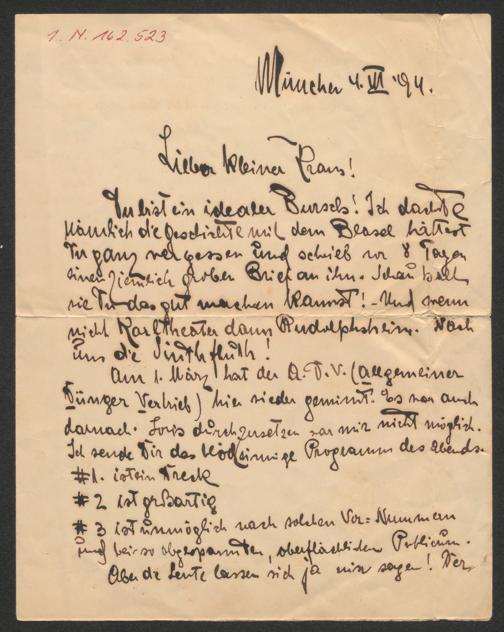 1. N. 162.523
München 4. VI '94.
Lieber kleiner Kraus!
Du bist ein idealer Bursch! Ich dachte
nämlich die Geschichte mit dem Blasel hättest
Du ganz vergessen und schrieb vor 8 Tagen
einen ziemlich groben Brief an ihn. Schau
wie Du das gut machen kannst! - Und wenn
nicht Karltheater dann Rudolphsheim. Nach
uns die Sinthfluth!
Am 1. März hat der A. D. V. (Allgemeiner
Dünger Vertrieb) hier wieder gemimt. Es war auch
darnach. durchzusetzen war mir nicht möglich.
Ich sende Dir das Programm des Abends.
#1. ist ein Dreck
#2 ist großartig
#3 ist unmöglich nach solchen Vor-Nummern
und bei so abgespannten, oberflächlichen Publicum.
Aber die Leute lassen sich ja nix sagen! Der